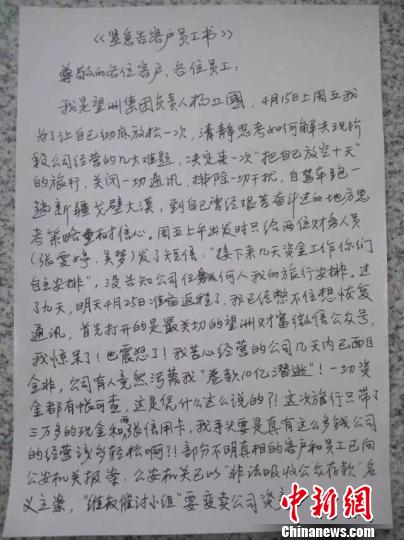 《紧急告客户员工书》
尊敬的各位客户、各位员工:
我是望洲集团负责人杨卫国,4月15日上周五我
为了让自己彻底放松一次,清静思考如何解决现阶
段公司经营的几大难题,决定来一次"把自己放空十天"
的旅行,关闭一切通讯,排除一切干扰,自驾车跑一
趟新疆戈壁大漠,到自己曾经艰苦奋斗过的地方思
考策略重树信心。周五上午出发时只给两位财务人员
(张雯婷、吴梦)发了短信:"接下来几天资金工作你们
自主安排",没告知公司任何人我的旅行安排。过
了九天,明天4月25日准备返程了,我已经憋不住想恢复
通讯,首先打开的是最关切的望洲财富微信公众号,
我惊呆了!也震怒了!我苦心经营的公司几天内已面目
全非,公司有人竟然污蔑我"卷款10亿潜逃"!一切资
金都有帐可查,这是凭什么这么说的?!这次旅行只带了
三万多的现金和两张信用卡,我手头要是真有这么多钱公司
的经营该多轻松啊?!部分不明真相的客户和员工已向
公安机关报案,公安机关已以"非法吸收公众存款"名
义立案,"维权催讨小组"要变卖公司资产
中新网
Chinanews.com